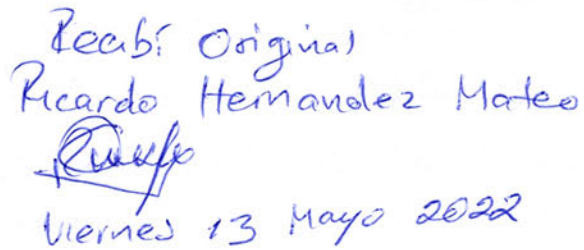 Recibí Original
Ricardo Hernandez Mateo
Viernes 13 Mayo 2022